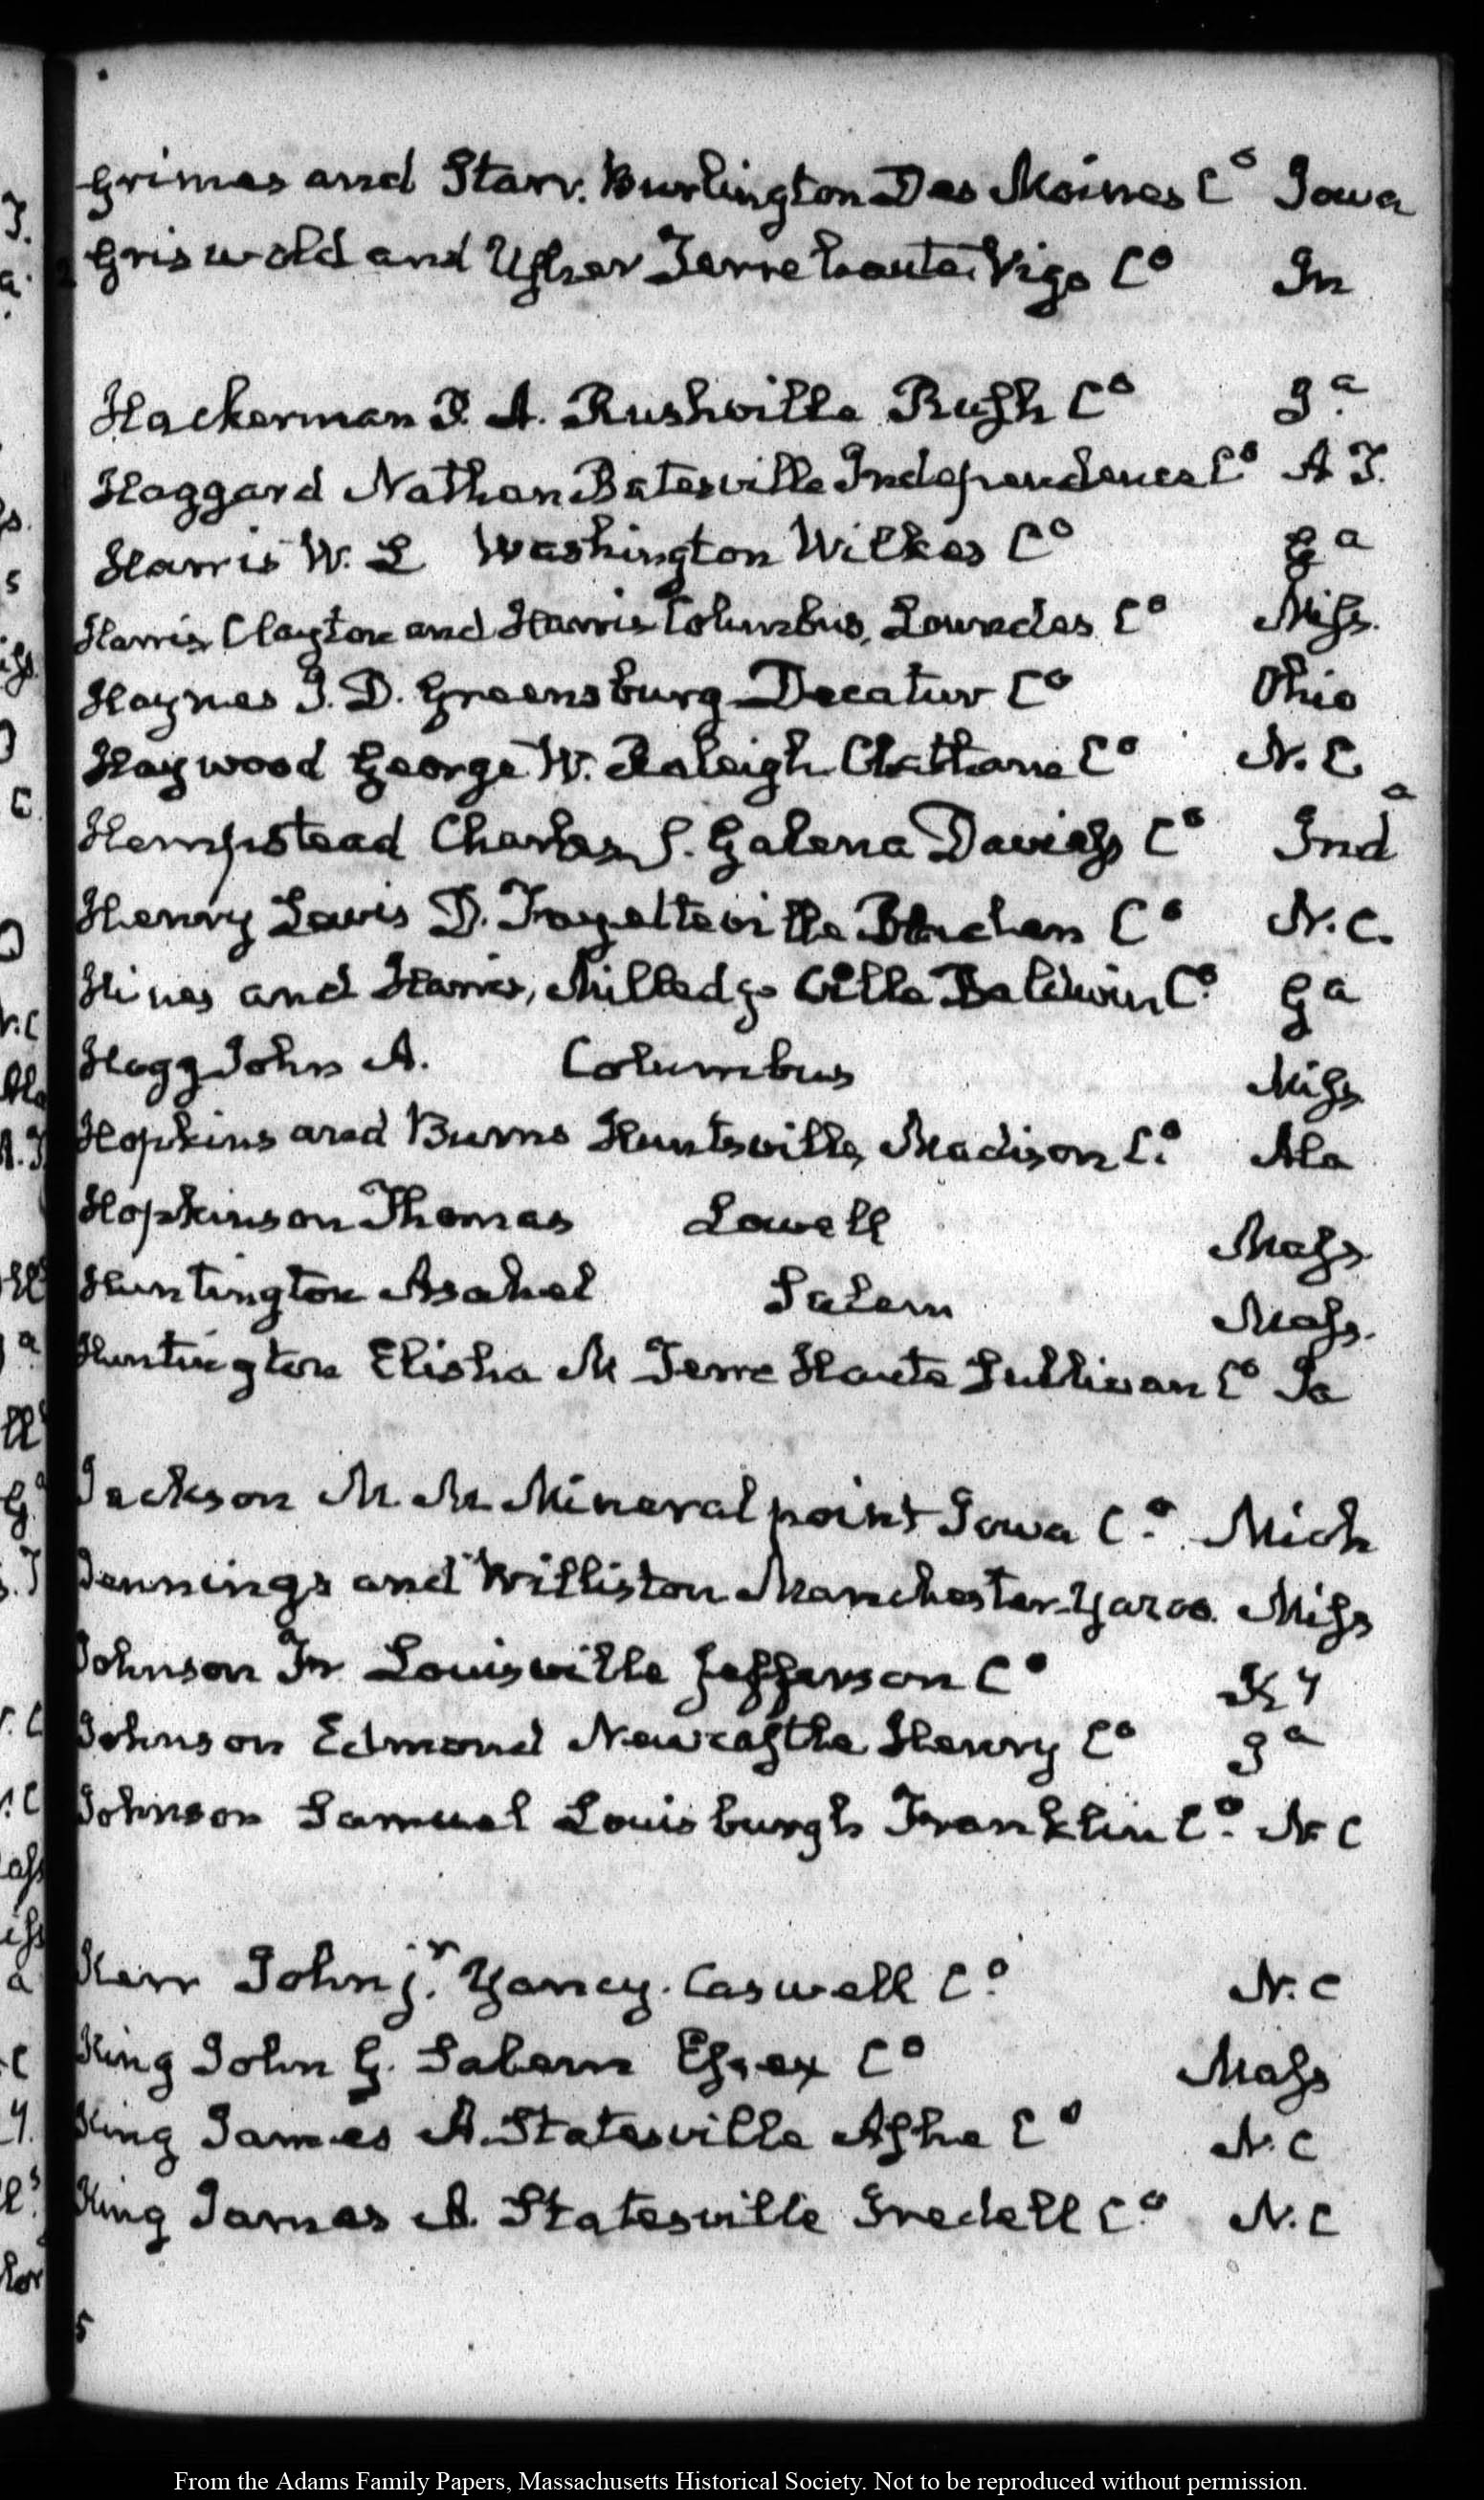 Grimes and Starr. Burlington Des Moines Co Iowa
Griswold and Usher Terre haute. Vigo Co In
Hackerman T. A. Rushville Rush Co Ja.
Haggard Nathan Batesville Independence Co A T.
Harris W. L Washington Wilkes Co Ga
Harris Clayton and Harris Columbus, Lowndes Co Miss.
Haynes J. D. Greensburg Decatur Co Ohio
Haywood George W. Raleigh Chatham Co N. C
Hempstead Charles S. Galena Daviess Co Inda
Henry Lewis D. Fayetteville Bladen Co N. C.
Hines and Harris, Milledgeville Baldwin Co Ga
Hogg John A. Columbus Miss
Hopkins and Burns Huntsville, Madison Co. Ala
Hopkinson Thomas Lowell Mass.
Huntington Asahel Salem Mass.
Huntington Elisha M Terre Haute Sullivan Co Ia
Jackson M. M. Mineral point Iowa Co. Mich
Jennings and Williston Manchester Yazoo. Miss
Johnson Jr Louisville Jefferson Co Ky
Johnson Edmond Newcastle Henry Co Ja
Johnson Samuel Louisburgh Franklin Co. N C
Kerr John jr. Yancy. Caswell Co. N. C
King John G. Salem Essex Co Mass
King James A. Statesville Ashe Co N. C
King James A. Statesville Iredell Co. N. C
From the Adams Family Papers, Massachusetts Historical Society. Not to be reproduced without permission.